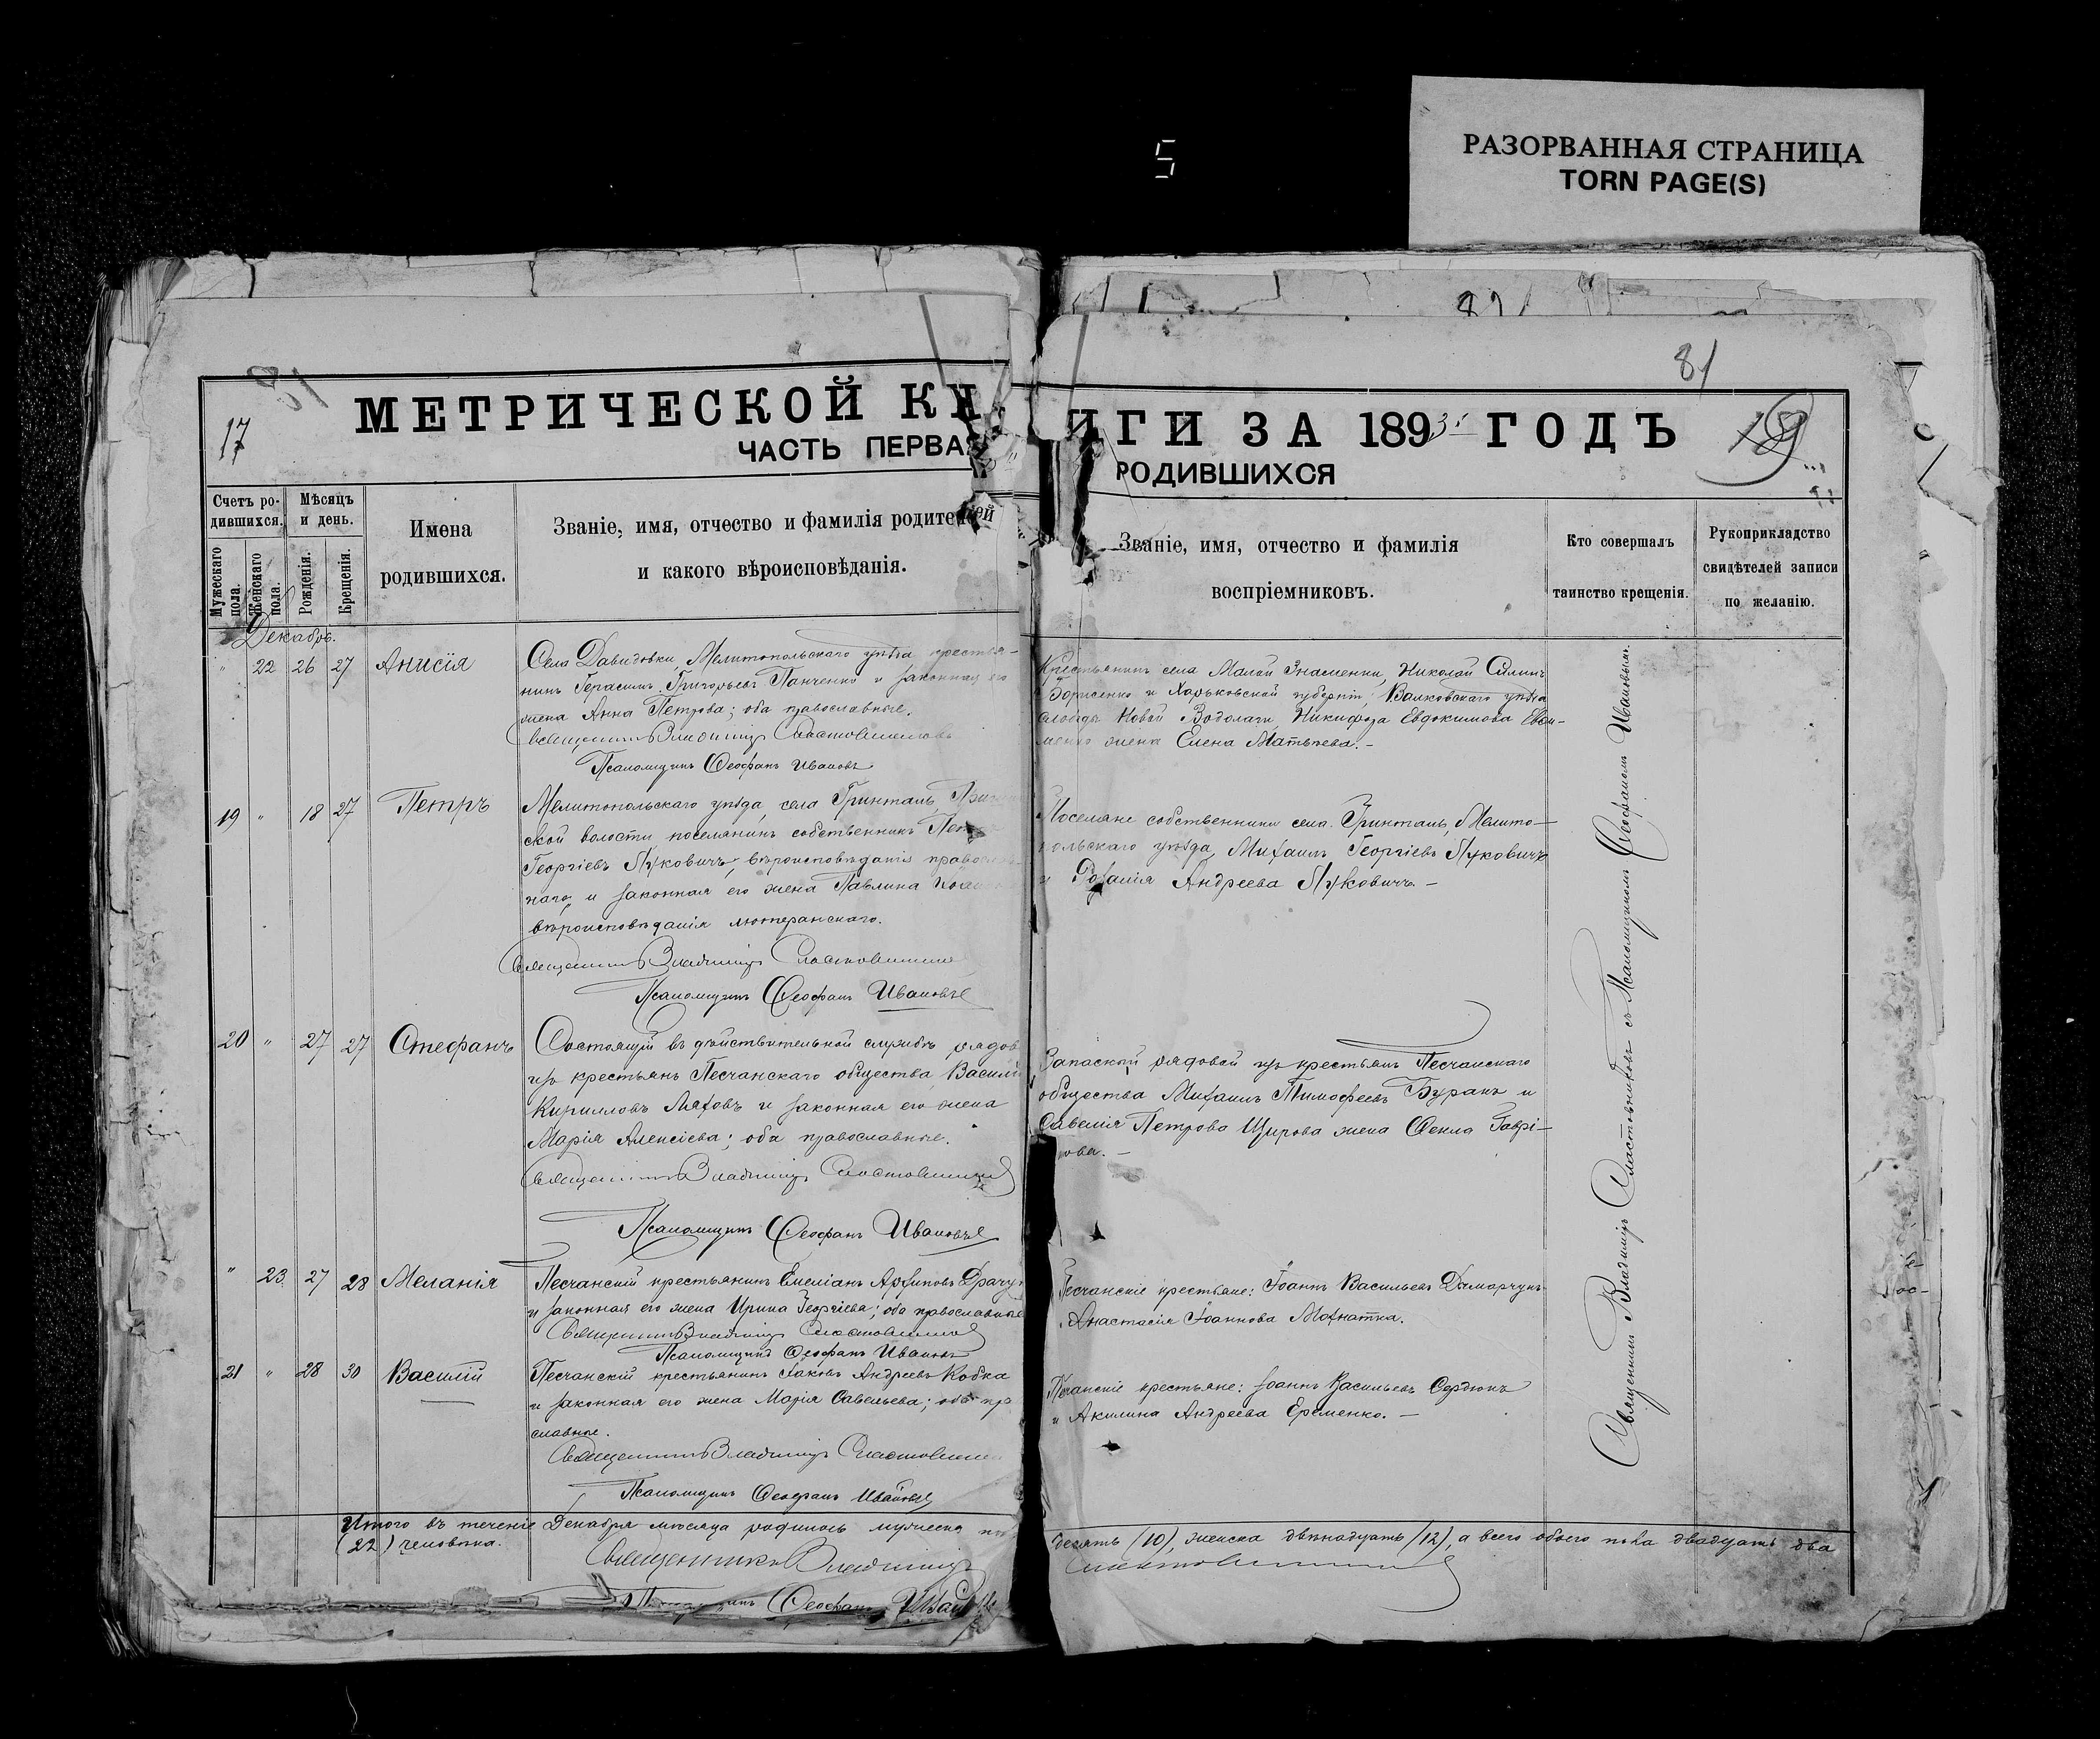 РАЗОРВАННАЯ СТРАНИЦА
TORN PAGE(S)
5
81
81
17
МЕТРИЧЕСКОЙ КН
ЧАСТЬ ПЕРВАЯ
ИГИ ЗА 1893 ГОДЪ
РОДИВШИХСЯ
Счетъ ро-
дившихся.
Мѣсяцъ
и день.
Мужескаго пола.
Женскаго пола.
Рожденія.
Крещенія.
Имена
родившихся.
Званіе, имя, отчество и фамилія родителей
и какого вѣроисповѣданія.
Званіе, имя, отчество и фамилія
воспріемниковъ.
Кто совершалъ
таинство крещенія.
Рукоприкладство
свидѣтелей записи
по желанію.
Декабрь.
" 22 26 27 Анисія
Села Давидовки, Мелитопольскаго уѣзда крестья-
нинъ Герасимъ Григорьевъ Панченко и законная его
жена Анна Петрова; оба православные.
Священникъ Владиміръ
Псаломщикъ Ѳеофанъ Ивановъ
Крестьянинъ села Малой Знаменки, Николай
Борисенко и Харьковской губерніи, Валковскаго уѣзда
слободы Новой Водолаги, Никифора Евдокимова
жена Елена Матвѣева. —
19 " 18 27 Петръ
Мелитопольскаго уѣзда, села Гринталь,
ской волости поселянинъ собственникъ
Георгіевъ Луковичъ, вѣроисповѣданія
наго, и законная его жена Павлина
вѣроисповѣданія лютеранскаго.
Священникъ Владиміръ
Псаломщикъ Ѳеофанъ Ивановъ
Поселяне собственники села Гринталь, Мелито-
польскаго уѣзда, Михаилъ Георгіевъ Луковичъ
и Розалія Андреева Луковичъ —
20 " 27 27 Стефанъ
Состоящій въ дѣйствительной службѣ рядов
изъ крестьянъ Песчанскаго общества, Васил
Кирилловъ Ляховъ и законная его жена
Марія Алексіева; оба православные.
Священникъ Владиміръ
Псаломщикъ Ѳеофанъ Ивановъ
Запасной рядовой изъ крестьянъ Песчанскаго
общества Михаилъ Тимофеевъ Буракъ и
Савелія Петрова Щирова жена Ѳекла Гаврі-
лова. —
" 23. 27 28 Меланія
Песчанскій крестьянинъ Емеліанъ Архиповъ
и законная его жена Ирина Георгіева; оба православные
Священникъ Владиміръ
Псаломщикъ Ѳеофанъ Ивановъ
Песчанскіе крестьяне: Іоаннъ Васильевъ
Анастасія Іоаннова Махнатка.
21 " 28 30 Василій
Песчанскій крестьянинъ Іаковъ Андреевъ Кобка
и законная его жена Марія Савельева; оба пра
славные.
Священникъ Владиміръ
Псаломщикъ Ѳеофанъ Ивановъ
Песчанскіе крестьяне: Іоаннъ Васильевъ Сердюкъ
и Акилина Андреева Еременко. —
Священникъ Владиміръ съ Псаломщикомъ Ѳеофаномъ Ивановымъ.
Итого въ теченіе Декабря мѣсяца родилось мужеска
десять (10), женска двѣнадцать (12), а всего обоего пола двадцать два
(22) человѣка.
Священникъ Владиміръ
Ѳеофанъ